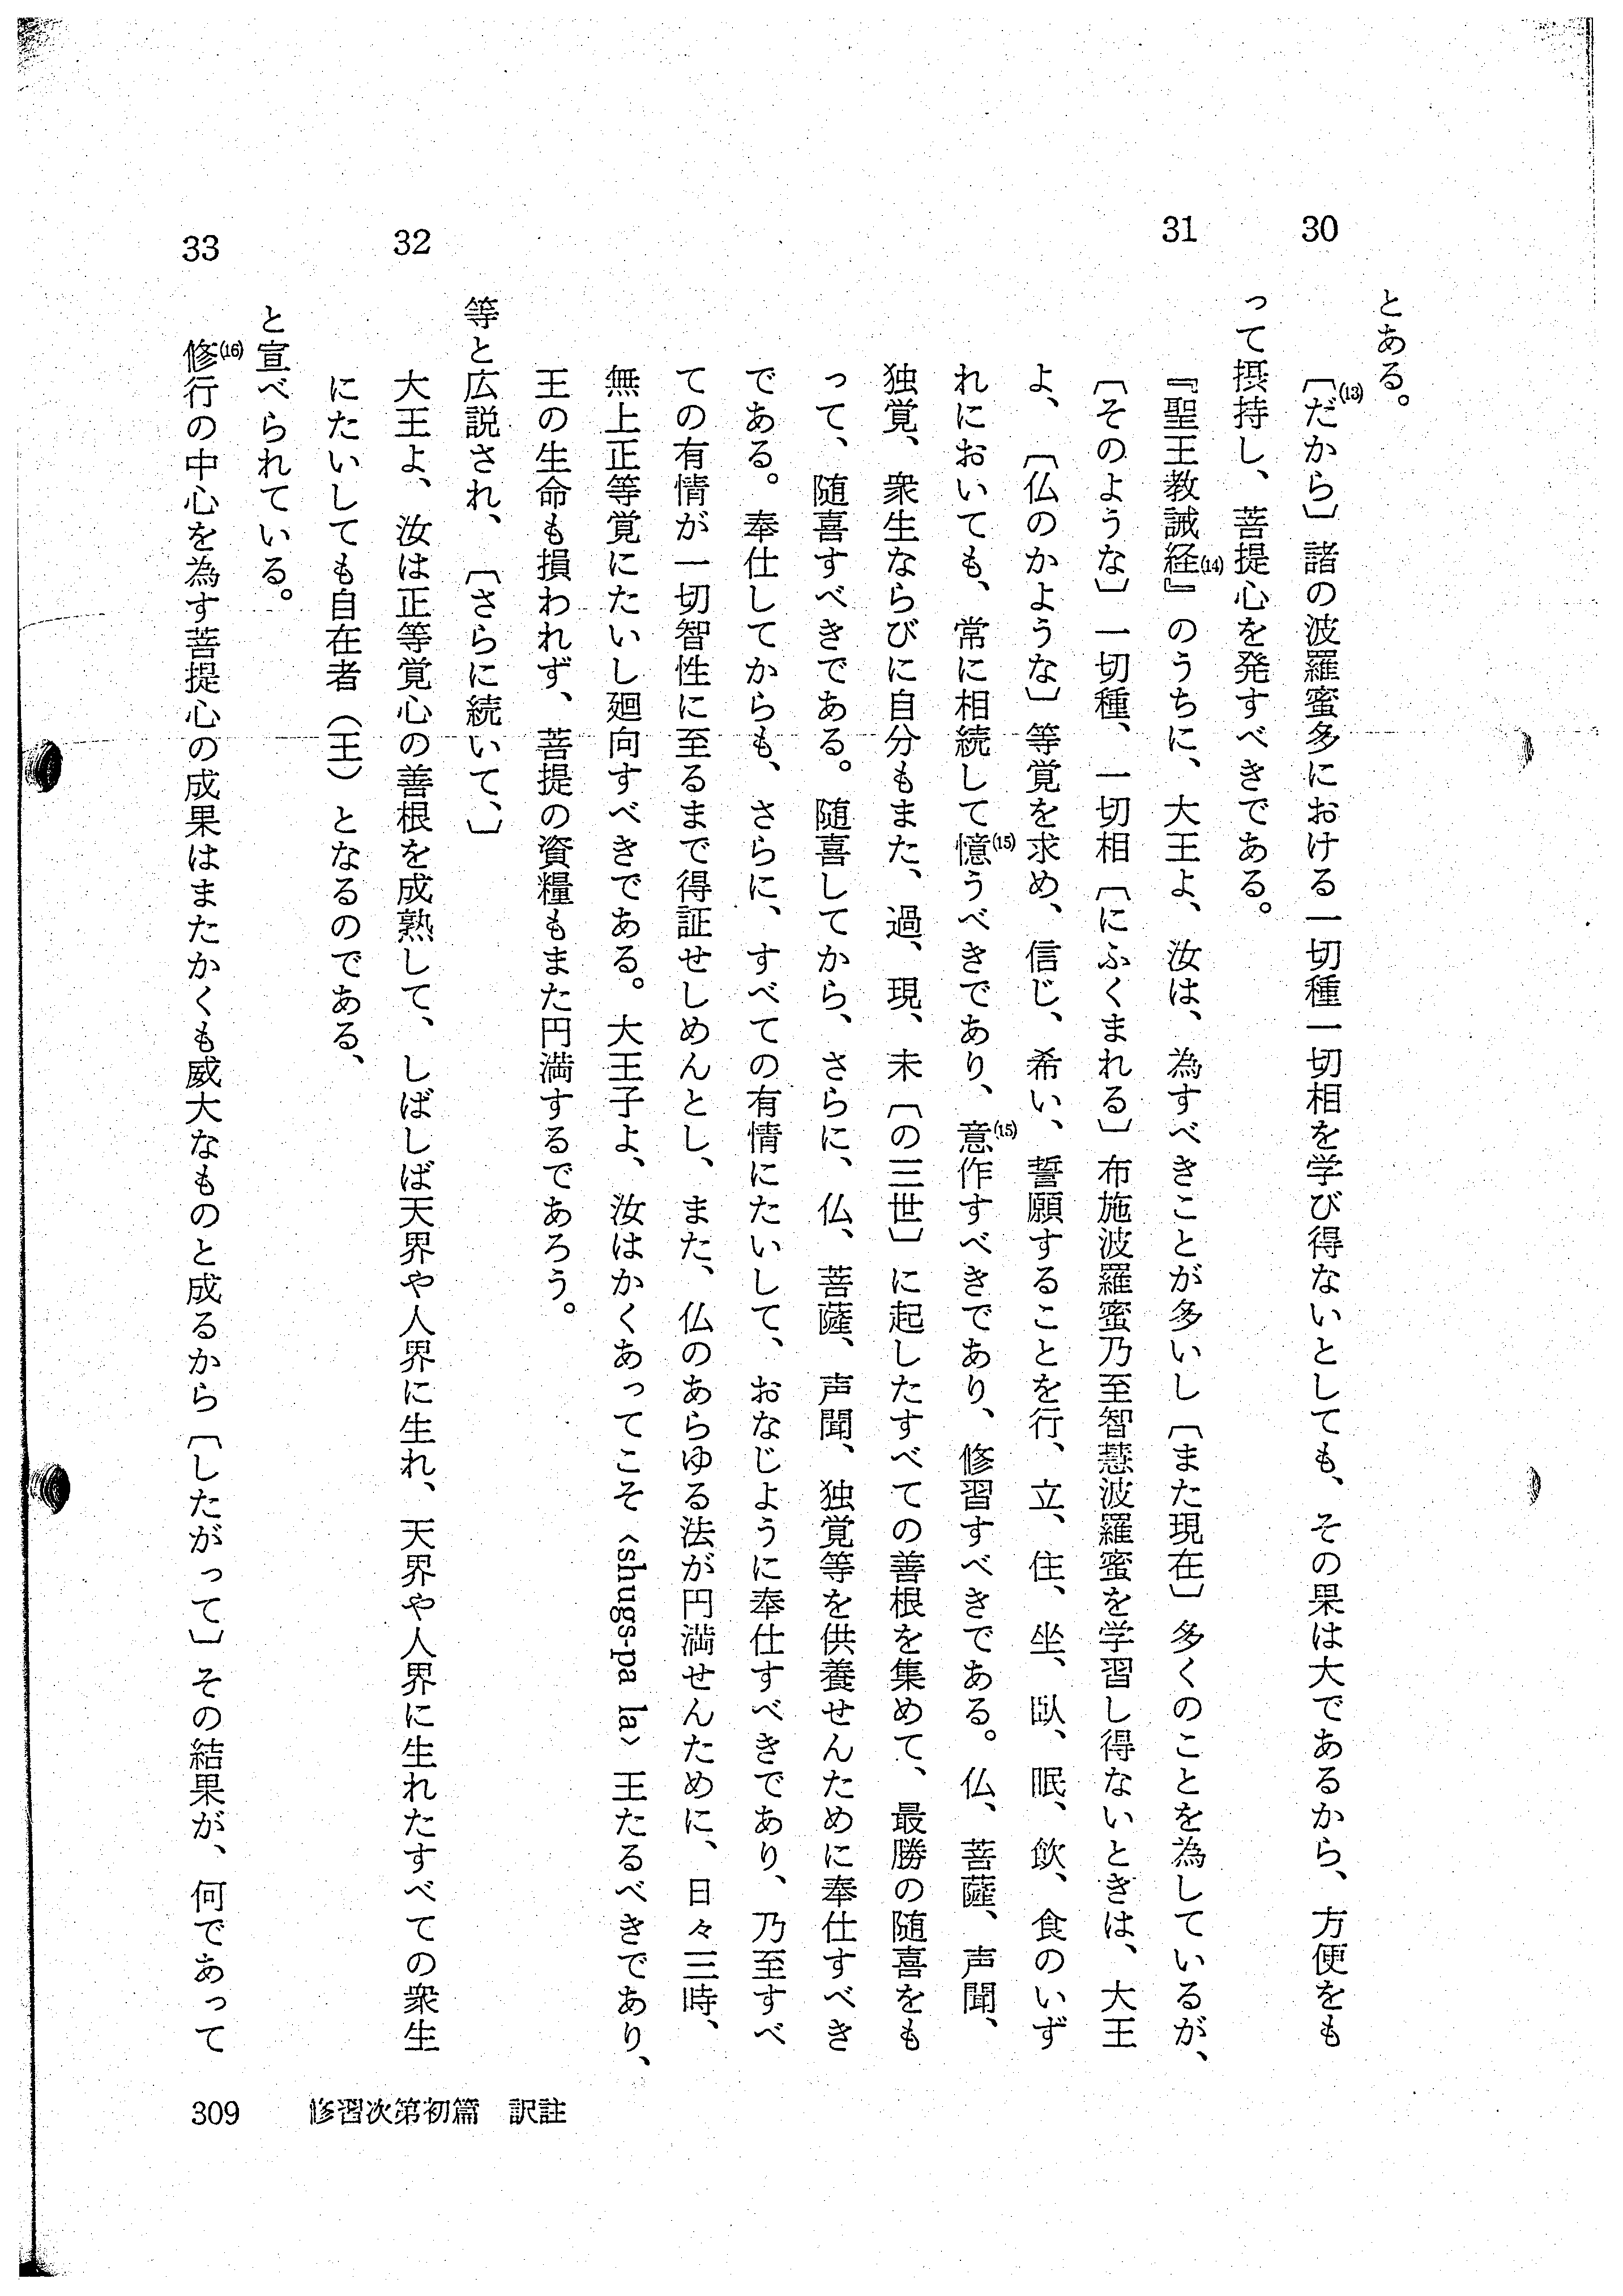 とある。
30 〔だから〕(13)諸の波羅蜜多における一切種一切相を学び得ないとしても、その果は大であるから、方便をも
って摂持し、菩提心を発すべきである。
31 『聖王教誡経』(14)のうちに、大王よ、汝は、為すべきことが多いし〔また現在〕多くのことを為しているが、
〔そのような〕一切種、一切相〔にふくまれる〕布施波羅蜜乃至智慧波羅蜜を学習し得ないときは、大王
よ、〔仏のかような〕等覚を求め、信じ、希い、誓願することを行、立、住、坐、臥、眠、飲、食のいず
れにおいても、常に相続して憶(15)うべきであり、意(15)作すべきであり、修習すべきである。仏、菩薩、声聞、
独覚、衆生ならびに自分もまた、過、現、未〔の三世〕に起したすべての善根を集めて、最勝の随喜をも
って、随喜すべきである。随喜してから、さらに、仏、菩薩、声聞、独覚等を供養せんために奉仕すべき
である。奉仕してからも、さらに、すべての有情にたいして、おなじように奉仕すべきであり、乃至すべ
ての有情が一切智性に至るまで得証せしめんとし、また、仏のあらゆる法が円満せんために、日々三時、
無上正等覚にたいし廻向すべきである。大王子よ、汝はかくあってこそ〈shugs-pa la〉王たるべきであり、
王の生命も損われず、菩提の資糧もまた円満するであろう。
等と広説され、〔さらに続いて、〕
32 大王よ、汝は正等覚心の善根を成熟して、しばしば天界や人界に生れ、天界や人界に生れたすべての衆生
にたいしても自在者（王）となるのである、
と宣べられている。
33 修(16)行の中心を為す菩提心の成果はまたかくも威大なものと成るから〔したがって〕その結果が、何であって
309 修習次第初篇 訳註